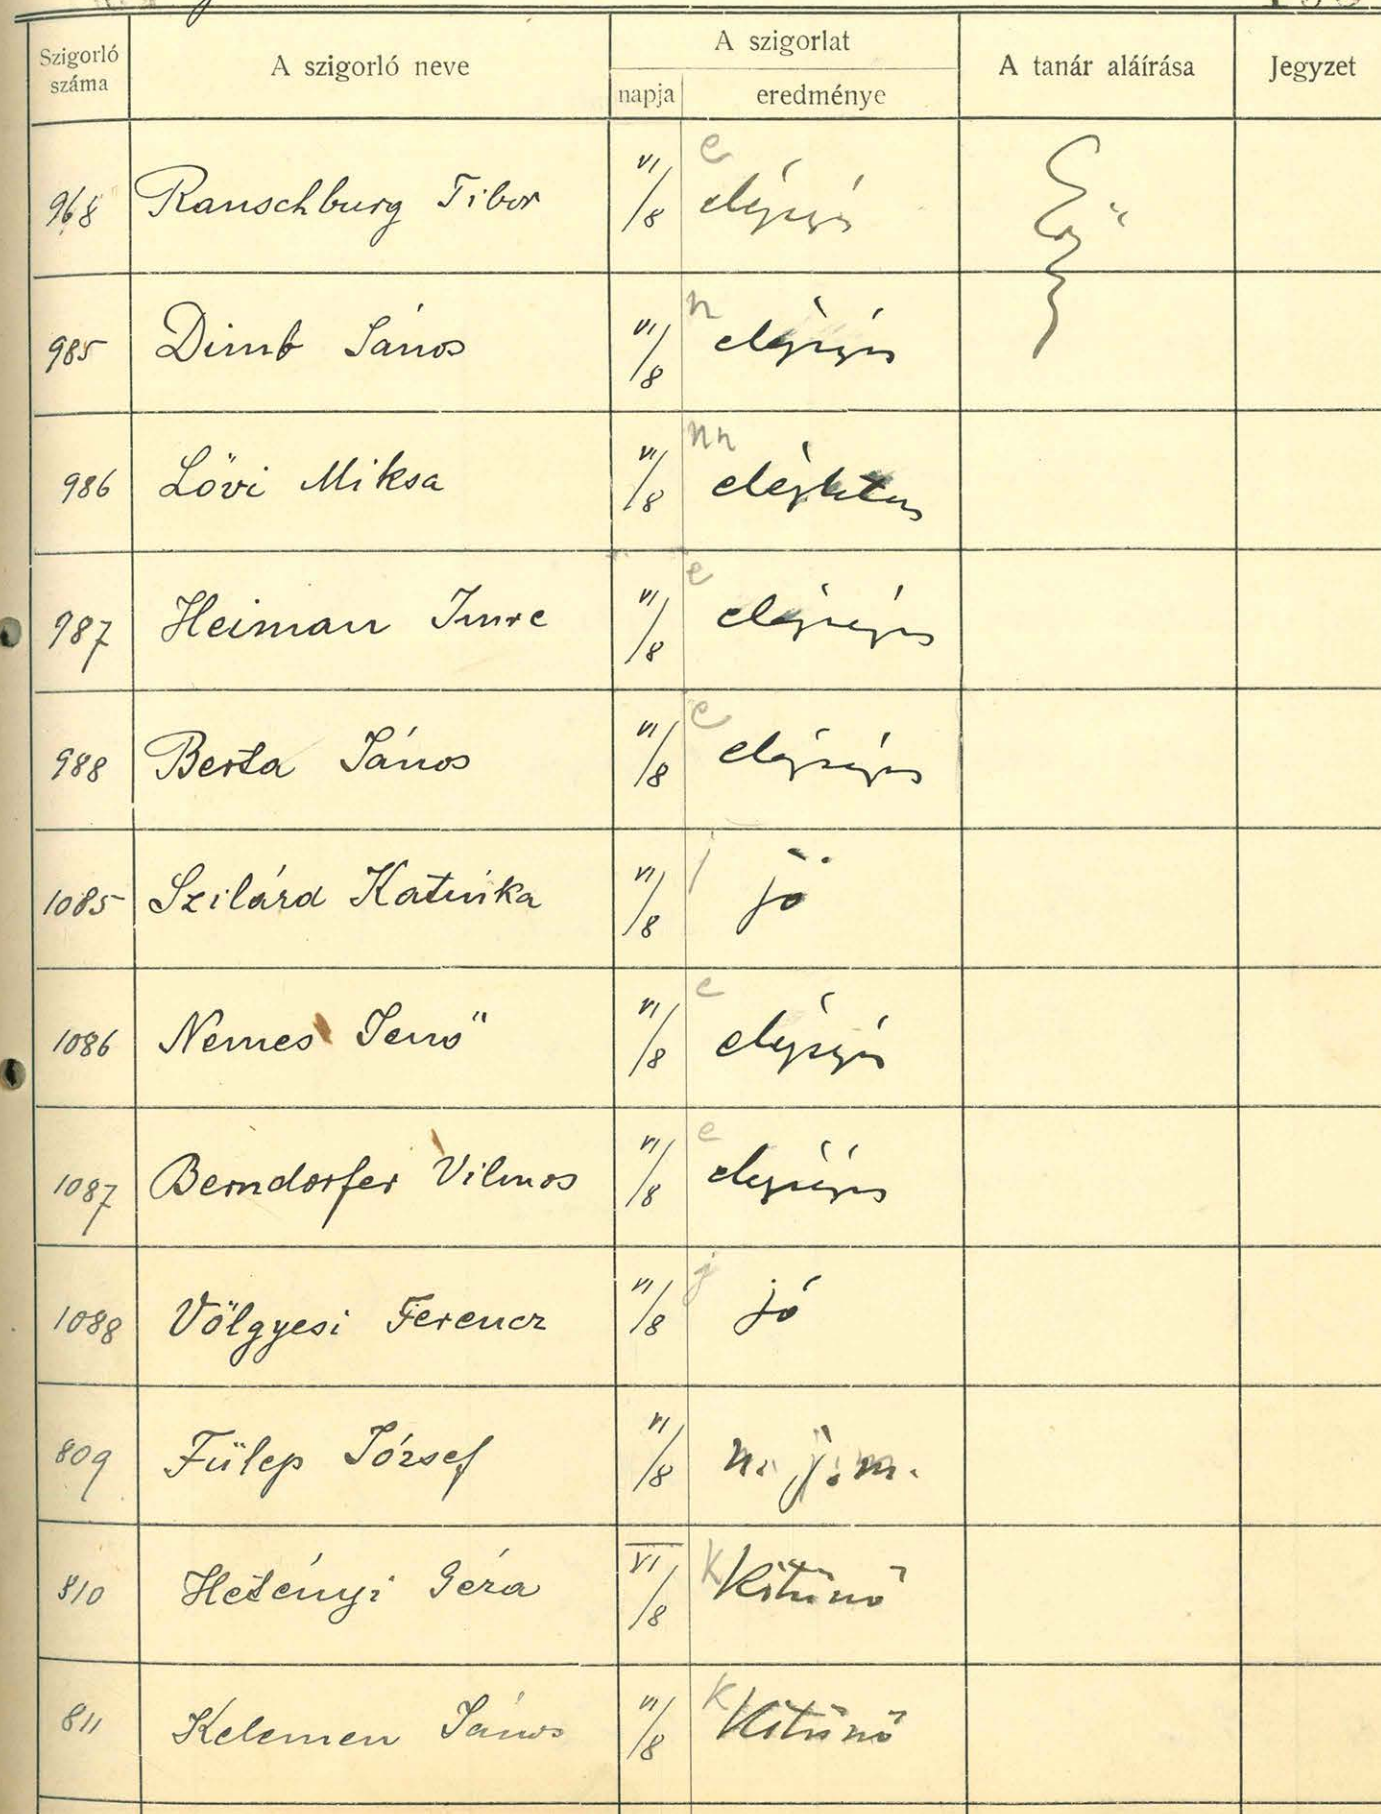 Szigorló száma | A szigorló neve | A szigorlat | A tanár aláírása | Jegyzet
napja | eredménye
968 Ranschburg Tibor VI/8 e elégséges
985 Dimb János VI/8 n elégséges
986 Lövi Miksa VI/8 nn elégtelen
987 Heiman Imre VI/8 e elégséges
988 Berta János VI/8 e elégséges
1085 Szilárd Katinka VI/8 j jó
1086 Nemes Jenő VI/8 e elégséges
1087 Berndorfer Vilmos VI/8 e elégséges
1088 Völgyesi Ferencz VI/8 j jó
809 Fülep József VI/8 n. j. m.
810 Hetényi Géza VI/8 k Kitűnő
811 Kelemen János VI/8 k Kitűnő